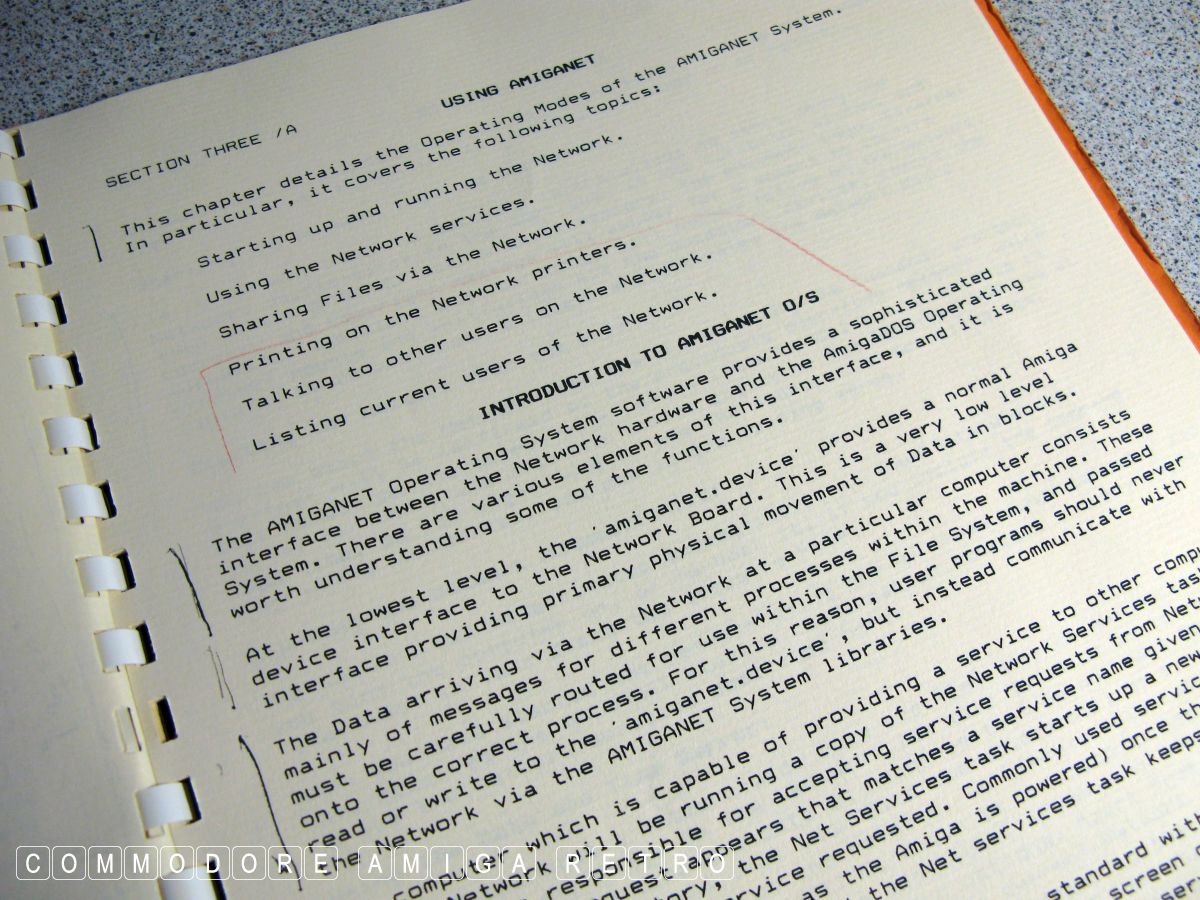 USING AMIGANET
SECTION THREE /A
This chapter details the Operating Modes of the AMIGANET System.
In particular, it covers the following topics:
Starting up and running the Network.
Using the Network services.
Sharing Files via the Network.
Printing on the Network printers.
Talking to other users on the Network.
Listing current users of the Network.
INTRODUCTION TO AMIGANET O/S
The AMIGANET Operating System software provides a sophisticated
interface between the Network hardware and the AmigaDOS Operating
System. There are various elements of this interface, and it is
worth understanding some of the functions.
At the lowest level, the 'amiganet.device' provides a normal Amiga
device interface to the Network Board. This is a very low level
interface providing primary physical movement of Data in blocks.
The Data arriving via the Network at a particular computer consists
mainly of messages for different processes within the machine. These
must be carefully routed for use within the File System, and passed
onto the correct process. For this reason, user programs should never
read or write to the 'amiganet.device', but instead communicate with
the Network via the AMIGANET System libraries.
computer which is capable of providing a service to other
Network will be running a copy of the Network Services
responsible for accepting service requests from
appears that matches a service name given
the Net Services task starts up a new
service requested. Commonly used
as the Amiga is powered) once
the Net services task keeps
standard
screen
COMMODORE AMIGA RETRO